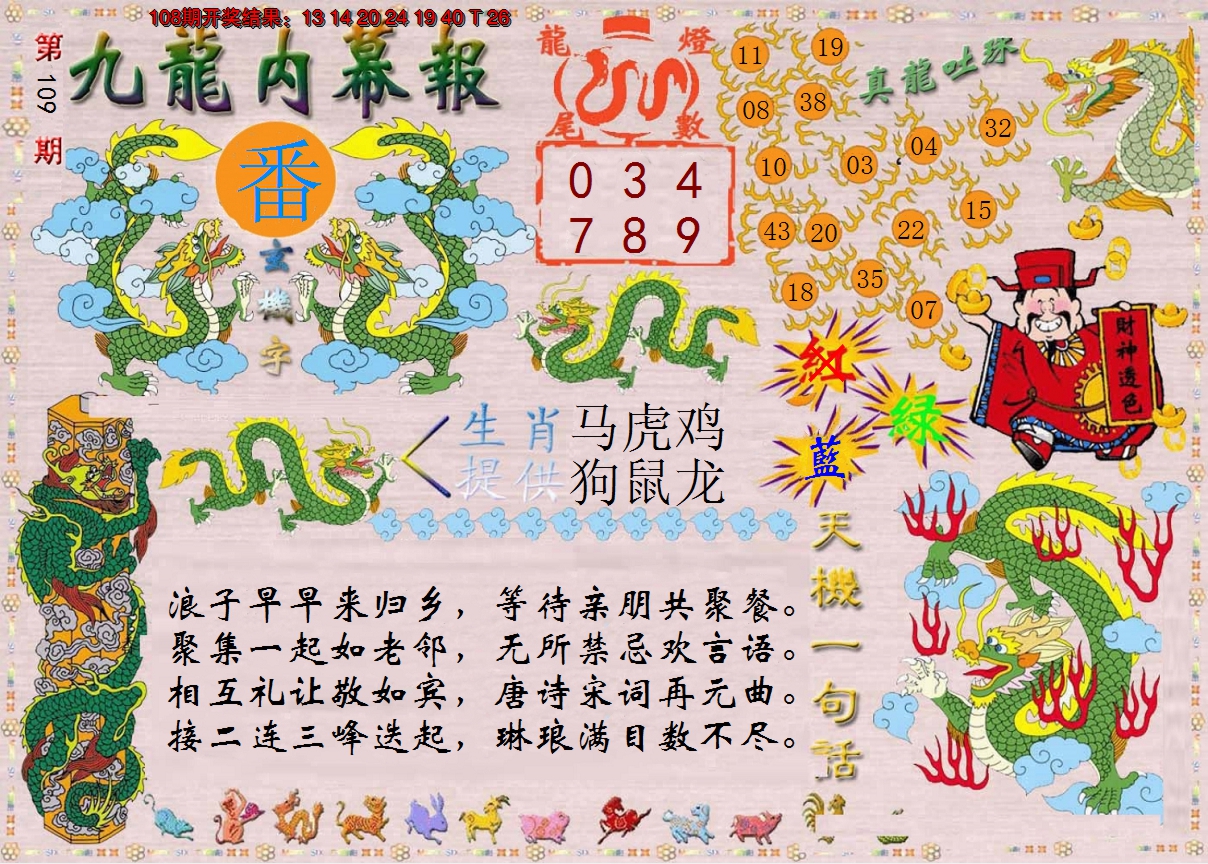 108期开奖结果：13 14 20 24 19 40 T 26
第109期
九龍内幕報
番
玄機字
龍燈
尾數
0 3 4
7 8 9
真龍吐珠
11 19
08 38
04 32
10 03
15
43 20 22
18 35
07
財神透色
紅
綠
藍
生肖 马虎鸡
提供 狗鼠龙
天機一句話
浪子早早来归乡，等待亲朋共聚餐。
聚集一起如老邻，无所禁忌欢言语。
相互礼让敬如宾，唐诗宋词再元曲。
接二连三峰迭起，琳琅满目数不尽。